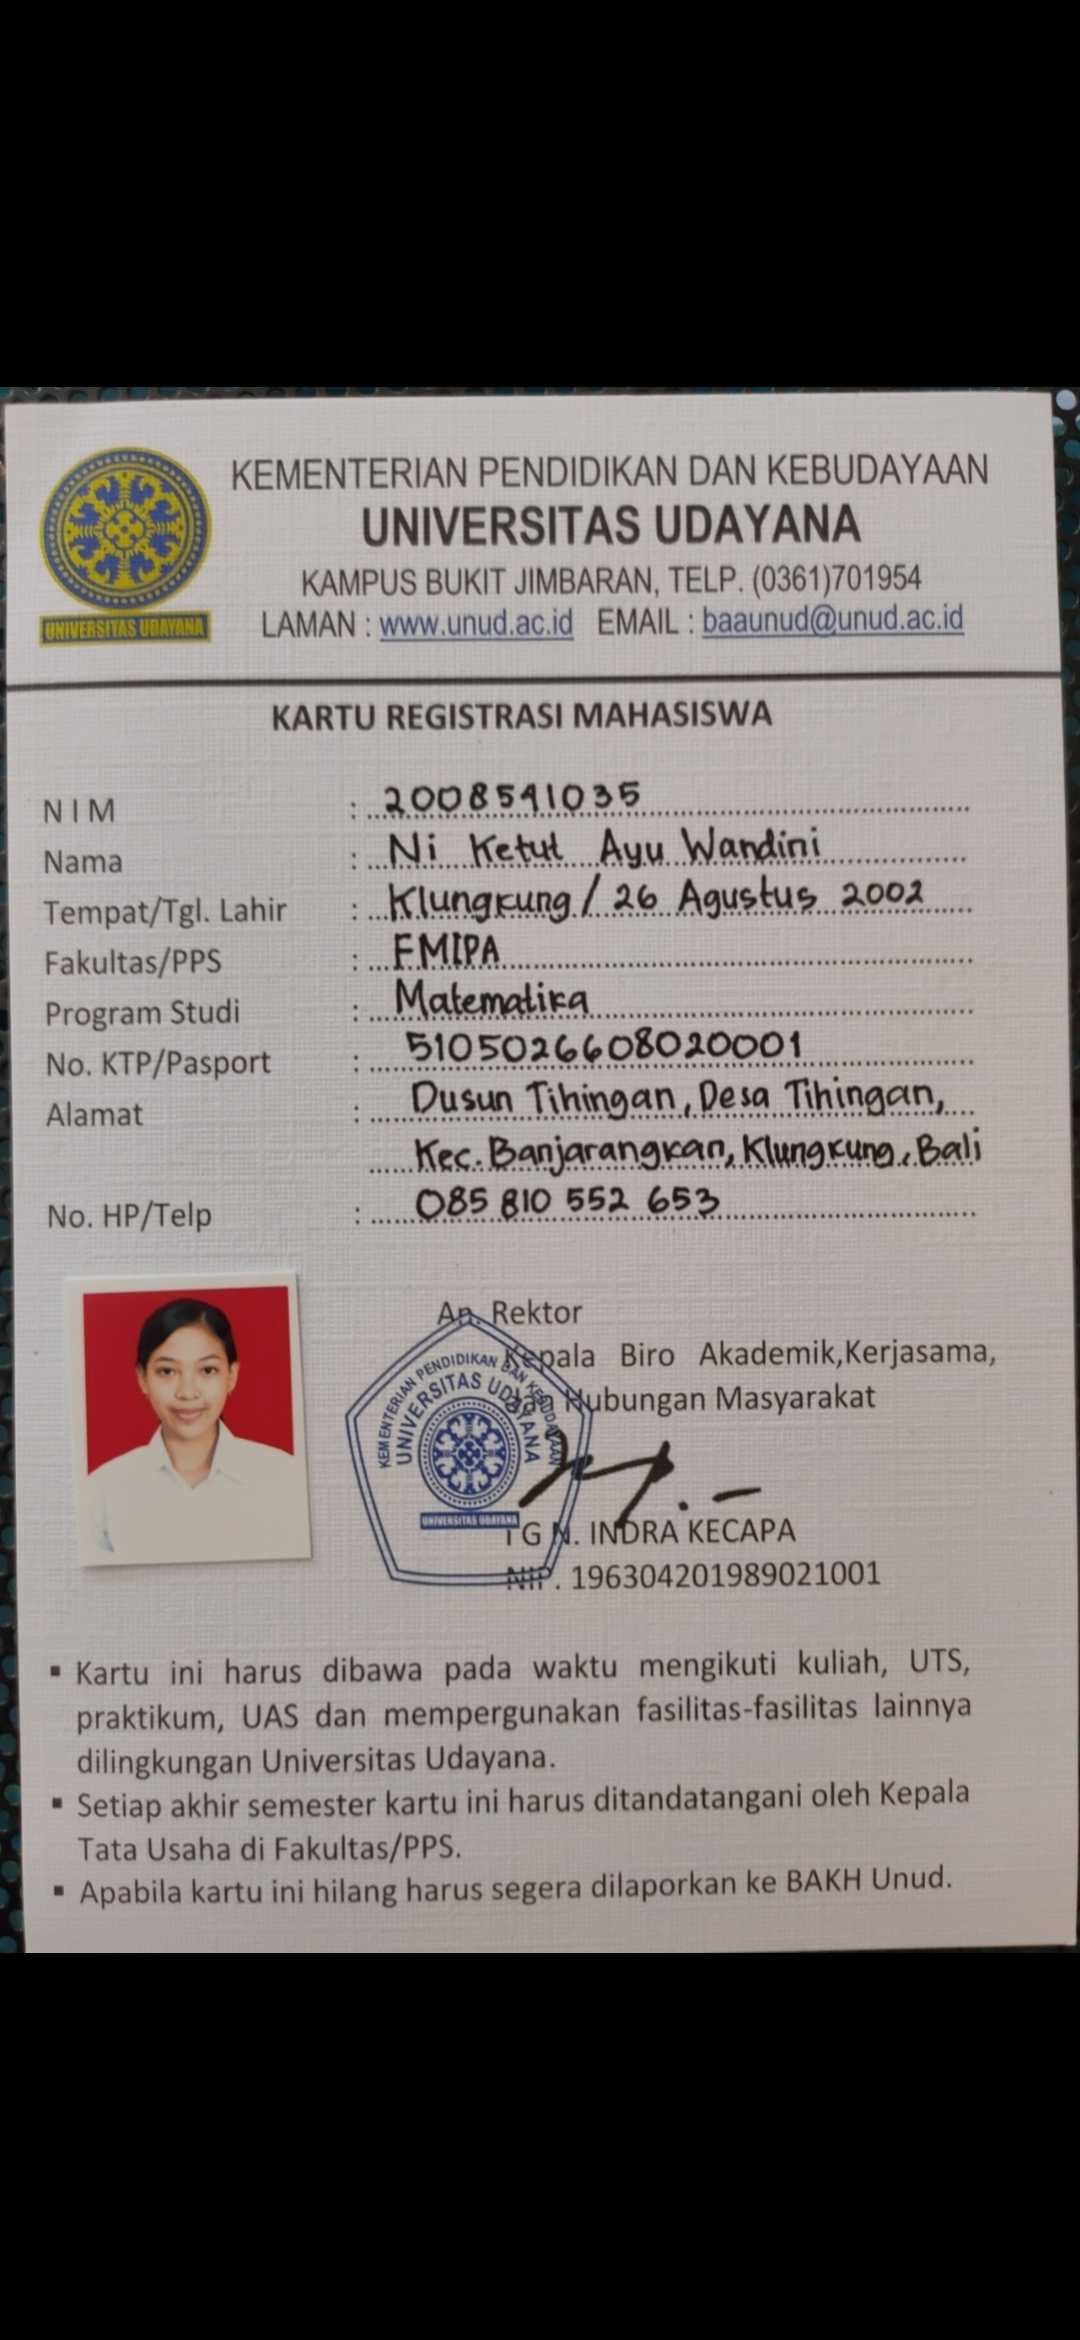 KEMENTERIAN PENDIDIKAN DAN KEBUDAYAAN
UNIVERSITAS UDAYANA
KAMPUS BUKIT JIMBARAN, TELP. (0361)701954
LAMAN : www.unud.ac.id EMAIL : baaunud@unud.ac.id
UNIVERSITAS UDAYANA
KARTU REGISTRASI MAHASISWA
N I M : 2008541035
Nama : Ni Ketut Ayu Wandini
Tempat/Tgl. Lahir : Klungkung / 26 Agustus 2002
Fakultas/PPS : FMIPA
Program Studi : Matematika
No. KTP/Pasport : 5105026608020001
Alamat : Dusun Tihingan, Desa Tihingan,
Kec. Banjarangkan, Klungkung, Bali
No. HP/Telp : 085 810 552 653
An. Rektor
Kepala Biro Akademik,Kerjasama,
dan Hubungan Masyarakat
KEMENTERIAN PENDIDIKAN DAN KEBUDAYAAN
UNIVERSITAS UDAYANA
UNIVERSITAS UDAYANA
I G N. INDRA KECAPA
NIP. 196304201989021001
▪ Kartu ini harus dibawa pada waktu mengikuti kuliah, UTS,
praktikum, UAS dan mempergunakan fasilitas-fasilitas lainnya
dilingkungan Universitas Udayana.
▪ Setiap akhir semester kartu ini harus ditandatangani oleh Kepala
Tata Usaha di Fakultas/PPS.
▪ Apabila kartu ini hilang harus segera dilaporkan ke BAKH Unud.